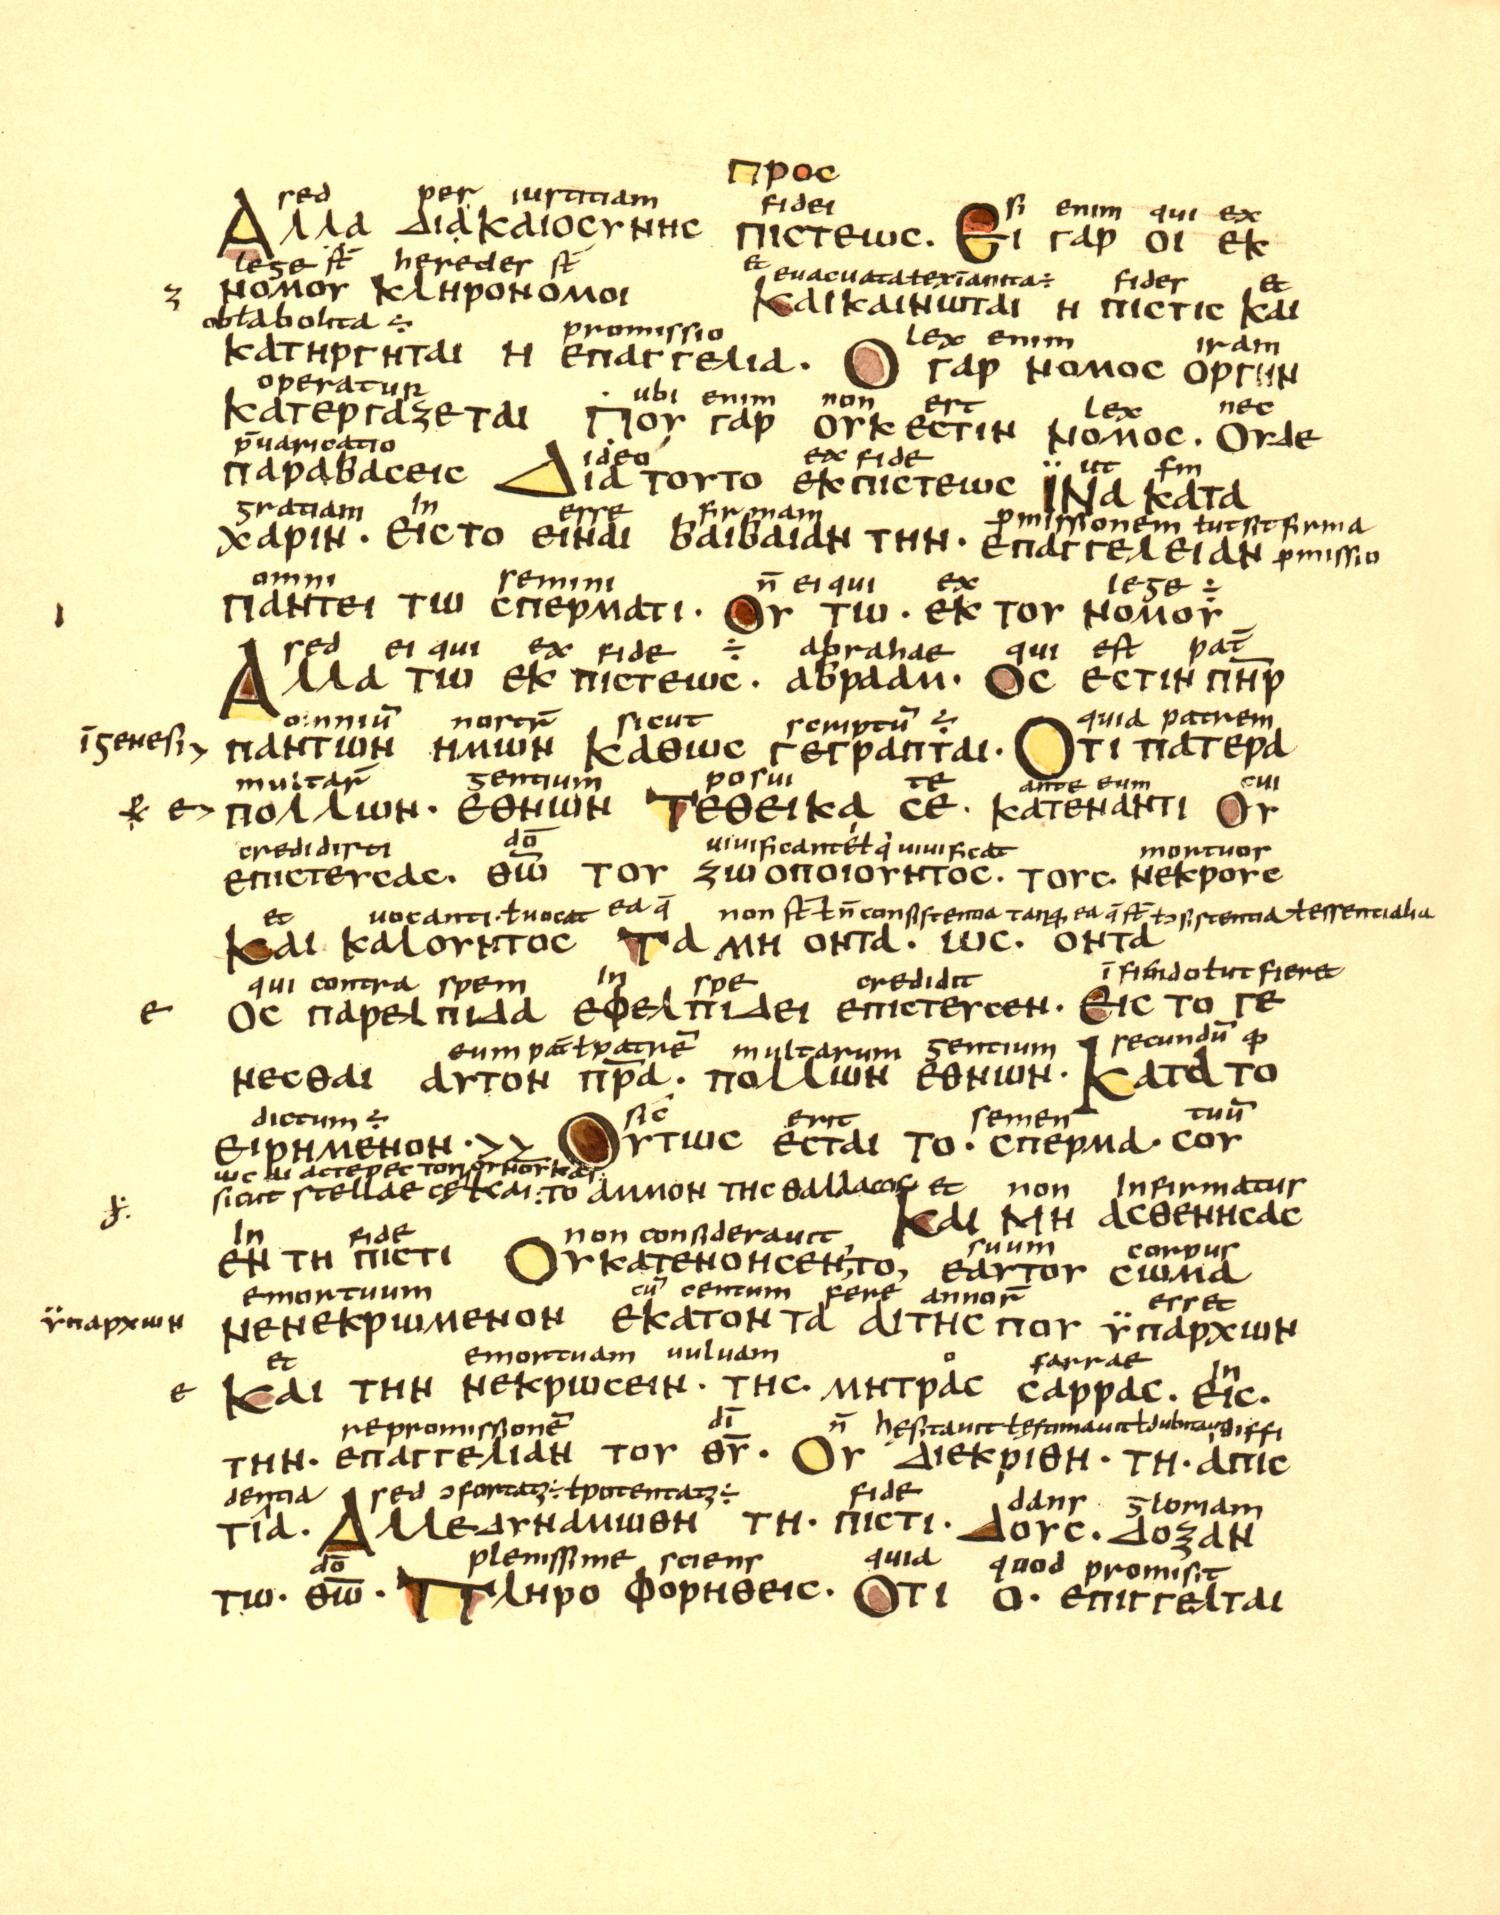 προс
sed per iustitiam fidei si enim qui ex
Αλλα Διακαιοсυνнс πιсτεωс. Ει γαρ οι εκ
lege st̄ heredes st̄ et euacuata ł exīanita÷ fides et
νομου κλнρονομοι Και καινωται н πιсτιс και
abolita ÷ promissio lex enim iram
κατнργнται н επαγγελια. Ο γαρ νομοс οργнν
operatur ubi enim non est lex nec
κατεργαζεται Που γαρ ουκ εсτιν Νομοс. Ουδε
p̄uaricatio ideo ex fide ut
παραβαсειс Δια τουτο εκ πιсτεωс ϊΝα κατα
gratiam In esse firmam ꝓmissionem ł ut sit firma
χαριν. ειсτο ειναι βαιβαιαν τнν. επαγγελειαν ꝓmissio
omni semini n̄ ei qui ex lege ÷
παντει τω сπερματι. Ου τω. εκ του νομου
sed ei qui ex fide ÷ abrahae qui est pat̄
Αλλα τω εκ πιсτεωс. αβρααμ. Οс εсτιν πн̄ρ
īgenesi omniū nostr̄ sicut scriptū ÷ quia patrem
παντων нμων καθωс γεγραπται. Οτι πατερα
multar̄ gentium posui te ante eum cui
ε πολλων. εθνων Τεθεικα сε. κατεναντι Ου
credidisti dō uiuificante ł q̇ uiuificat mortuos
επιсτευсαс. θω̄ του ζωοποιουντοс. τουс. νεκρουс
et uocanti. ł uocat ea q̄ non st̄ ł n̄ consistentia tanq̄ ea q̄ st̄ ł ɔsistentia ł essentialia
Και καλουντοс Τα μн οντα. ωс. οντα
qui contra spem In spe credidit ł ut fieret
ε Οс παρελπιδα εφελπιδει επιсτευсεν. Ειс το γε
eum pat̄ ł patrē multarum gentium secundū ꝙ
νεсθαι αυτον πρ̄α. πολλων εθνων. Κατα το
dictum ÷ sic̄ erit semen tuū
ειρнμενον. Ουτωс εсται το. сπερμα. сου
sicut stellae και: το αμμον τнс θαλλαсснс et non Infirmatur
Και Μн αсθενнсαс
In fide non considerauit suum corpus
εν τн πιсτι Ου κατενοнсεν, το, εαυτου сωμα
emortuum cū centum fere annor̄ esset
ϋπαρχων νενεκρωμενον εκατον τα αιτнс που ϋπαρχων
et emortuam uuluam sarrae In
ε Και τнν νεκρωсειν. τнс. μнτραс сαρραс. ειс.
repromissionē dī n̄ hesitauit diffi
τнν. επαγγελιαν του θῡ. Ου Διεκριθн. τн. απιс
dentia sed ɔfortatꝫ÷ ł potentatꝫ÷ fide dans gloriam
τια. Αλλεδυναμωθн τн. πιсτι. Δουс. Δοξαν
dō plenissime sciens quia quod promisit
τω. θω̄. Πλнρο φορнθειс. Οτι ο. επιγγελται